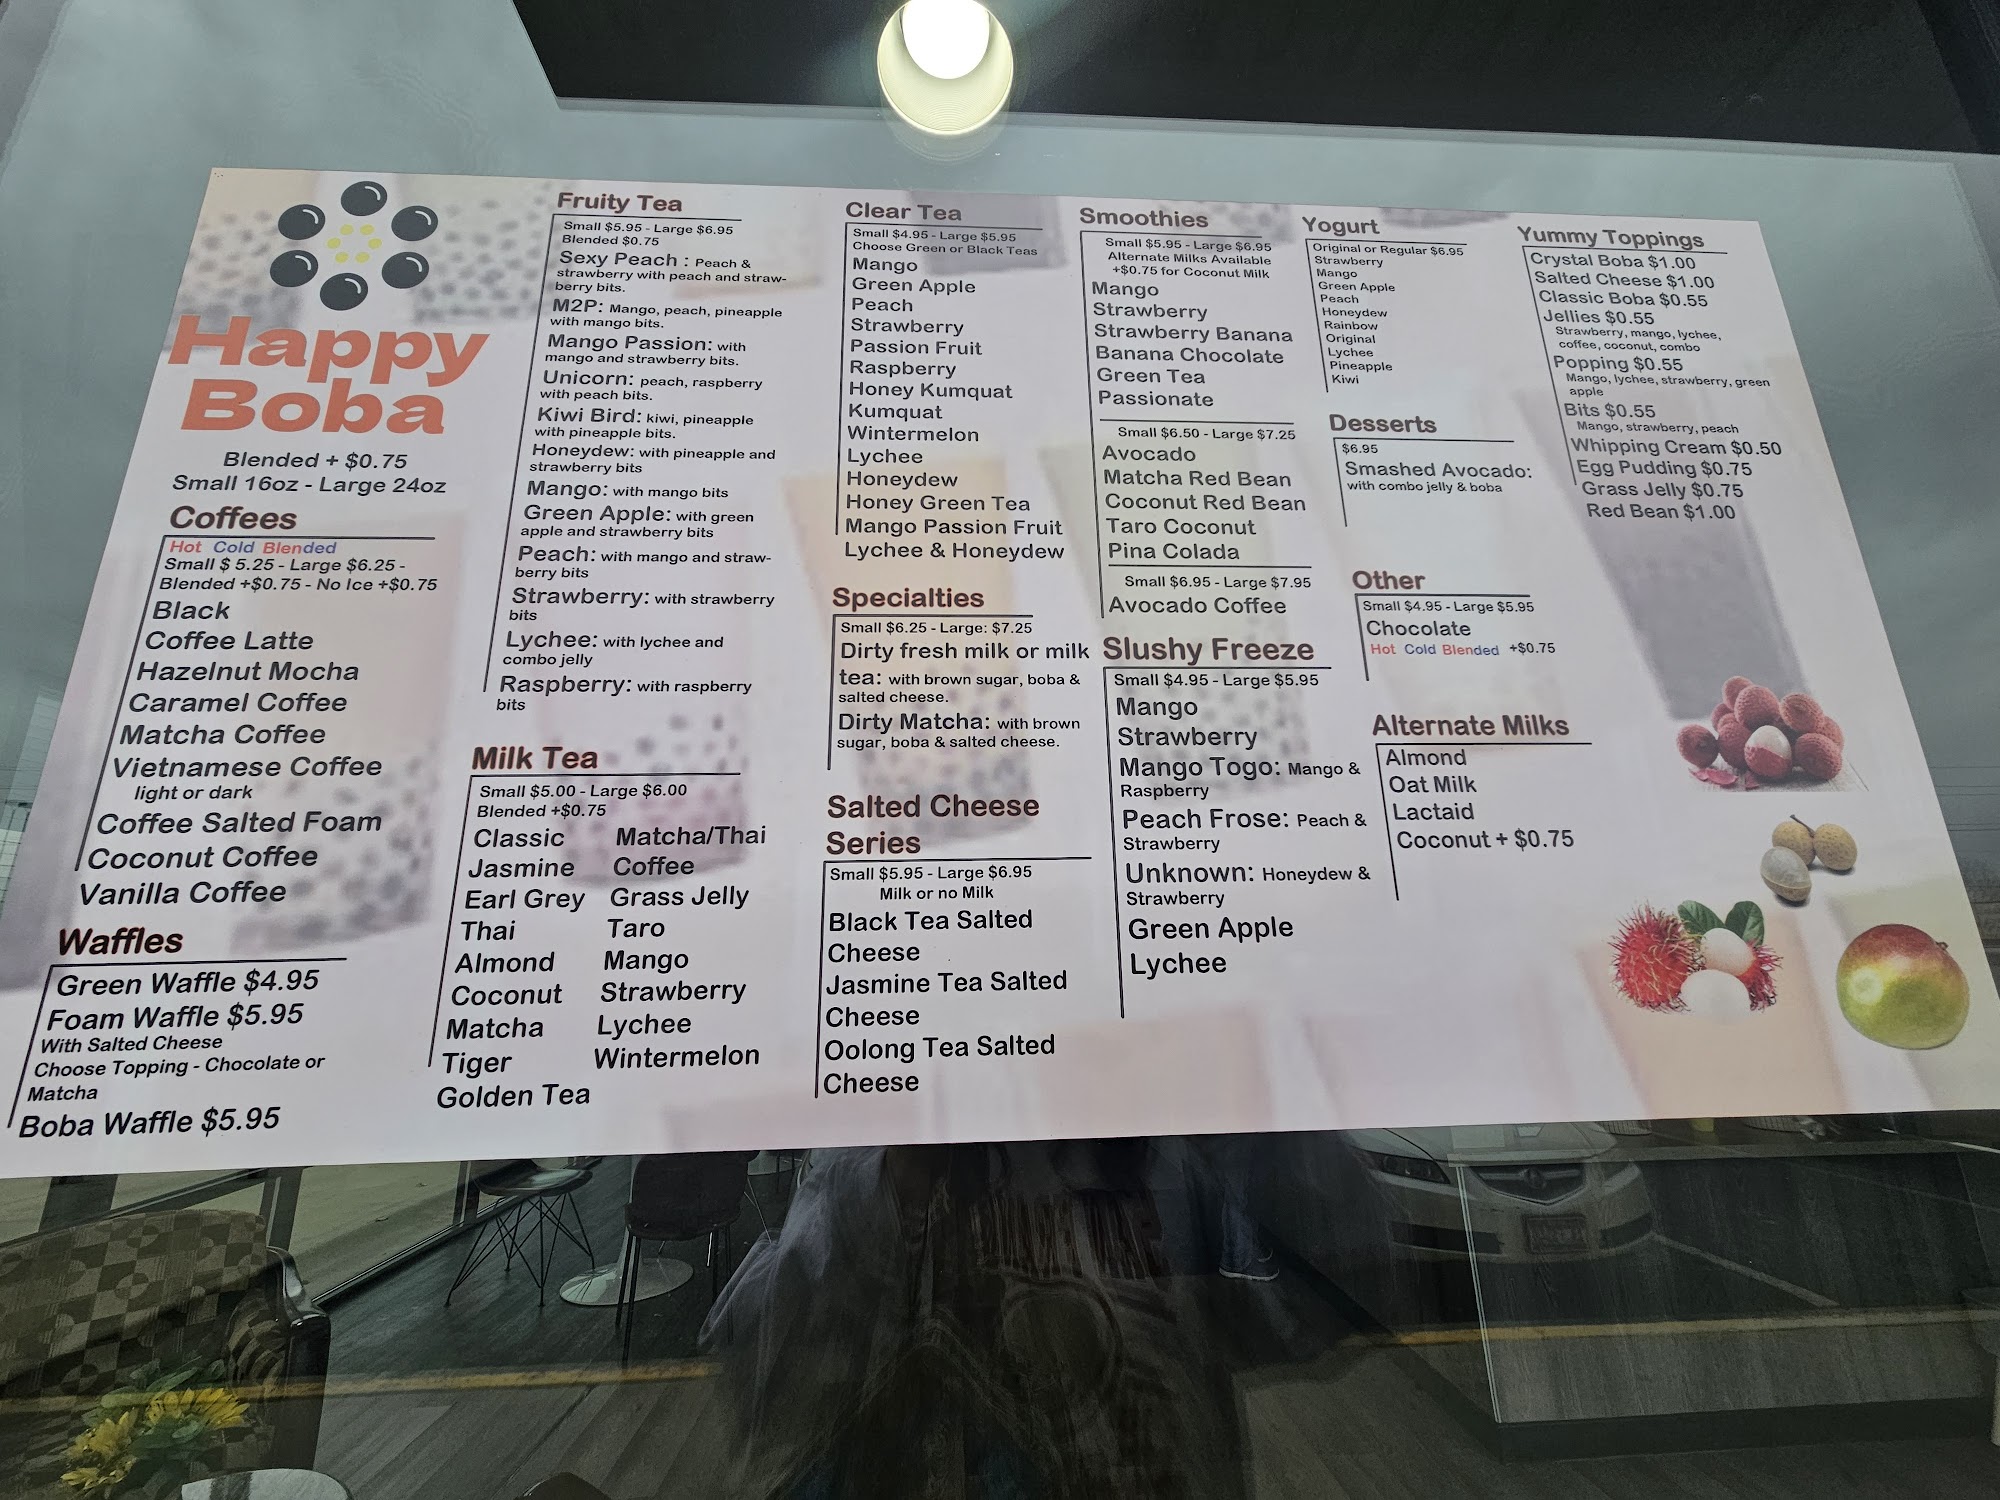 Happy
Boba
Blended + $0.75
Small 16oz - Large 24oz
Coffees
Hot Cold Blended
Small $ 5.25 - Large $6.25 -
Blended +$0.75 - No Ice +$0.75
Black
Coffee Latte
Hazelnut Mocha
Caramel Coffee
Matcha Coffee
Vietnamese Coffee
light or dark
Coffee Salted Foam
Coconut Coffee
Vanilla Coffee
Waffles
Green Waffle $4.95
Foam Waffle $5.95
With Salted Cheese
Choose Topping - Chocolate or
Matcha
Boba Waffle $5.95
Fruity Tea
Small $5.95 - Large $6.95
Blended $0.75
Sexy Peach : Peach &
strawberry with peach and straw-
berry bits.
M2P: Mango, peach, pineapple
with mango bits.
Mango Passion: with
mango and strawberry bits.
Unicorn: peach, raspberry
with peach bits.
Kiwi Bird: kiwi, pineapple
with pineapple bits.
Honeydew: with pineapple and
strawberry bits
Mango: with mango bits
Green Apple: with green
apple and strawberry bits
Peach: with mango and straw-
berry bits
Strawberry: with strawberry
bits
Lychee: with lychee and
combo jelly
Raspberry: with raspberry
bits
Milk Tea
Small $5.00 - Large $6.00
Blended +$0.75
Classic
Jasmine
Earl Grey
Thai
Almond
Coconut
Matcha
Tiger
Golden Tea
Matcha/Thai
Coffee
Grass Jelly
Taro
Mango
Strawberry
Lychee
Wintermelon
Clear Tea
Small $4.95 - Large $5.95
Choose Green or Black Teas
Mango
Green Apple
Peach
Strawberry
Passion Fruit
Raspberry
Honey Kumquat
Kumquat
Wintermelon
Lychee
Honeydew
Honey Green Tea
Mango Passion Fruit
Lychee & Honeydew
Specialties
Small $6.25 - Large: $7.25
Dirty fresh milk or milk
tea: with brown sugar, boba &
salted cheese.
Dirty Matcha: with brown
sugar, boba & salted cheese.
Salted Cheese
Series
Small $5.95 - Large $6.95
Milk or no Milk
Black Tea Salted
Cheese
Jasmine Tea Salted
Cheese
Oolong Tea Salted
Cheese
Smoothies
Small $5.95 - Large $6.95
Alternate Milks Available
+$0.75 for Coconut Milk
Mango
Strawberry
Strawberry Banana
Banana Chocolate
Green Tea
Passionate
Small $6.50 - Large $7.25
Avocado
Matcha Red Bean
Coconut Red Bean
Taro Coconut
Pina Colada
Small $6.95 - Large $7.95
Avocado Coffee
Slushy Freeze
Small $4.95 - Large $5.95
Mango
Strawberry
Mango Togo: Mango &
Raspberry
Peach Frose: Peach &
Strawberry
Unknown: Honeydew &
Strawberry
Green Apple
Lychee
Yogurt
Original or Regular $6.95
Strawberry
Mango
Green Apple
Peach
Honeydew
Rainbow
Original
Lychee
Pineapple
Kiwi
Desserts
$6.95
Smashed Avocado:
with combo jelly & boba
Other
Small $4.95 - Large $5.95
Chocolate
Hot Cold Blended +$0.75
Alternate Milks
Almond
Oat Milk
Lactaid
Coconut + $0.75
Yummy Toppings
Crystal Boba $1.00
Salted Cheese $1.00
Classic Boba $0.55
Jellies $0.55
Strawberry, mango, lychee,
coffee, coconut, combo
Popping $0.55
Mango, lychee, strawberry, green
apple
Bits $0.55
Mango, strawberry, peach
Whipping Cream $0.50
Egg Pudding $0.75
Grass Jelly $0.75
Red Bean $1.00